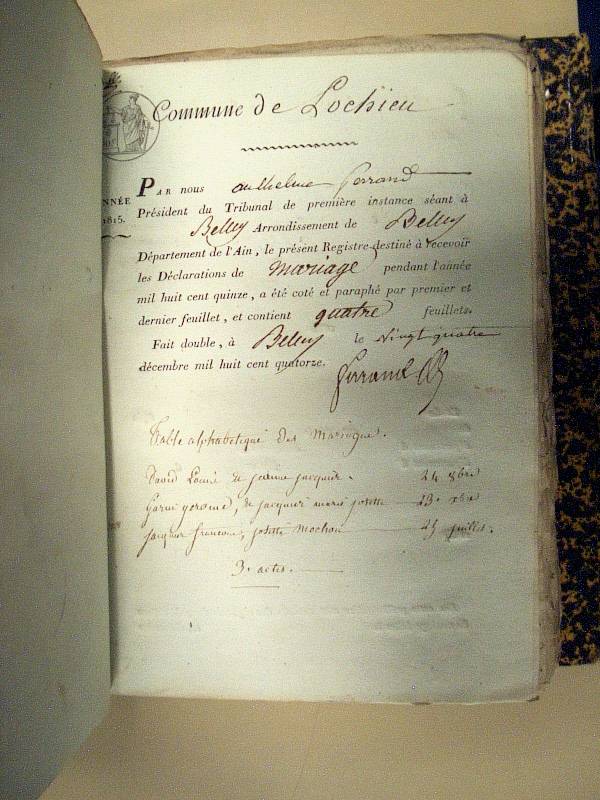 Commune de Lochieu
ANNÉE
1815.
PAR nous anthelme Ferrand
Président du Tribunal de première instance séant à
Belley Arrondissement de Belley
Département de l'Ain, le présent Registre destiné à recevoir
les Déclarations de Mariage pendant l'année
mil huit cent quinze, a été coté et paraphé par premier et
dernier feuillet, et contient quatre feuillets.
Fait double, à Belley le vingt quatre
décembre mil huit cent quatorze.
Ferrand
Table alphabetique des Mariages.
David Louis & jeanne jacquier. 24 9bre
jacquier marie josette 23. xbre
jacquier francois, josette Mochon 25 juillet.
3. actes.